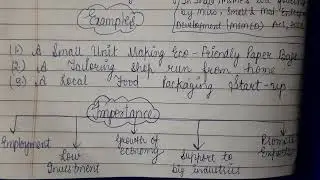 by micro, Small & Med. Enterprises
Development (MSMED) Act,
Examples
(1) A Small Unit Making Eco-Friendly Paper Bags
(2) A Tailoring Shop run from home
(3) A Local Food Packaging Start-up
Importance
Employment
Low Investment
Growth of economy
Support to big industries
Promote Exports